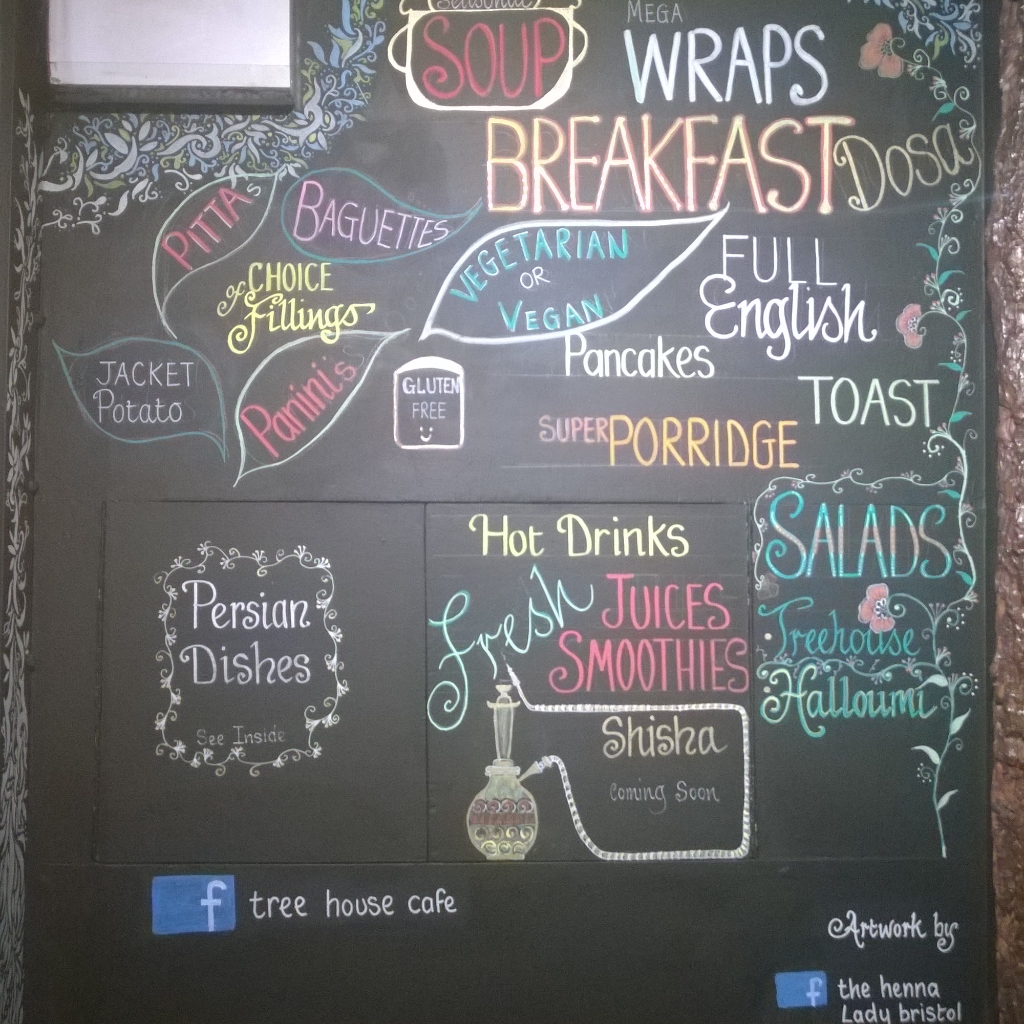 Seasonal
SOUP
MEGA
WRAPS
BREAKFAST
Dosa
PITTA
BAGUETTES
CHOICE
of Fillings
VEGETARIAN
OR
VEGAN
FULL
English
JACKET
Potato
Panini's
GLUTEN
FREE
Pancakes
TOAST
SUPER PORRIDGE
SALADS
Treehouse
Halloumi
Persian
Dishes
See Inside
Hot Drinks
Fresh
JUICES
SMOOTHIES
Shisha
Coming Soon
f tree house cafe
Artwork by
f the henna
Lady bristol